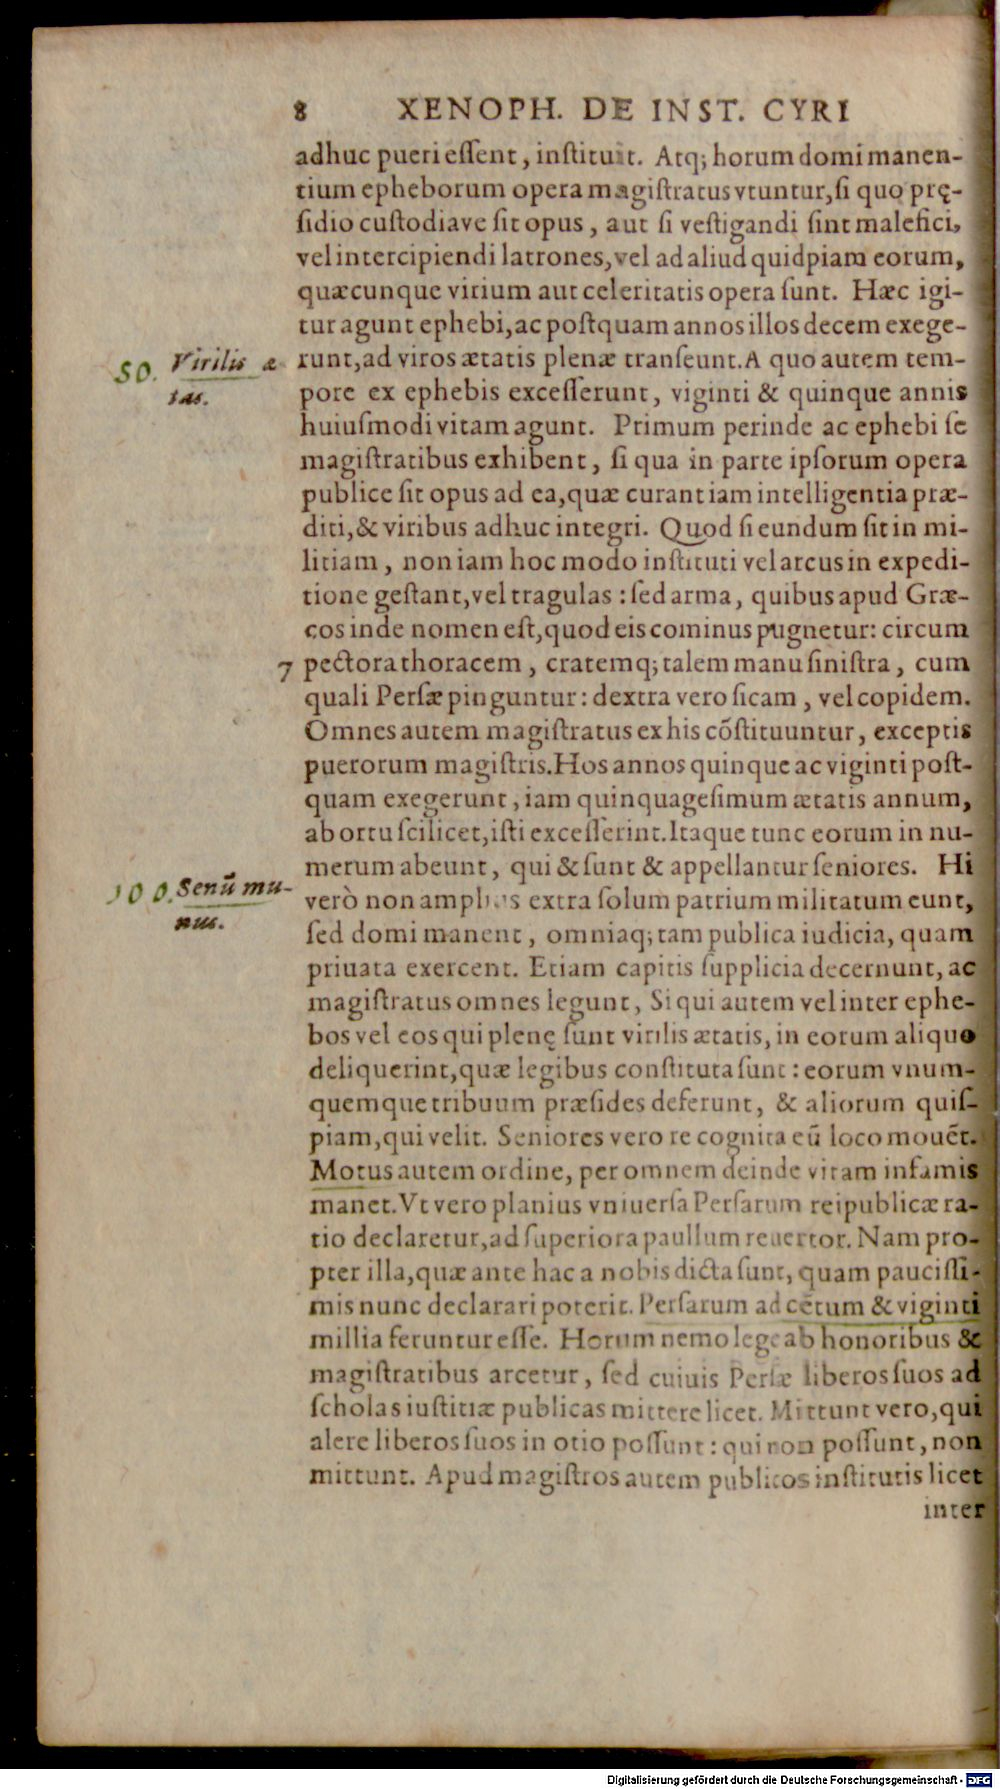 8 XENOPH. DE INST. CYRI
adhuc pueri eſſent, inſtituit. Atq; horum domi manen-
tium epheborum opera magiſtratus vtuntur, ſi quo prę-
ſidio cuſtodiave ſit opus, aut ſi veſtigandi ſint malefici,
vel intercipiendi latrones, vel ad aliud quidpiam eorum,
quæcunque virium aut celeritatis opera ſunt. Hæc igi-
tur agunt ephebi, ac poſtquam annos illos decem exege-
50. Virilis æ
tas.
runt, ad viros ætatis plenæ tranſeunt. A quo autem tem-
pore ex ephebis exceſſerunt, viginti & quinque annis
huiuſmodi vitam agunt. Primum perinde ac ephebi ſe
magiſtratibus exhibent, ſi qua in parte ipſorum opera
publice ſit opus ad ea, quæ curant iam intelligentia præ-
diti, & viribus adhuc integri. Quod ſi eundum ſit in mi-
litiam, non iam hoc modo inſtituti vel arcus in expedi-
tione geſtant, vel tragulas: ſed arma, quibus apud Græ-
cos inde nomen eſt, quod eis cominus pugnetur: circum
7 pectora thoracem, cratemq; talem manu ſiniſtra, cum
quali Perſæ pinguntur: dextra vero ſicam, vel copidem.
Omnes autem magiſtratus ex his cõſtituuntur, exceptis
puerorum magiſtris. Hos annos quinque ac viginti poſt-
quam exegerunt, iam quinquageſimum ætatis annum,
ab ortu ſcilicet, iſti exceſſerint. Itaque tunc eorum in nu-
merum abeunt, qui & ſunt & appellantur ſeniores. Hi
100. Senũ mu-
nus.
verò non amplius extra ſolum patrium militatum eunt,
ſed domi manent, omniaq; tam publica iudicia, quam
priuata exercent. Etiam capitis ſupplicia decernunt, ac
magiſtratus omnes legunt, Si qui autem vel inter ephe-
bos vel eos qui plenę ſunt virilis ætatis, in eorum aliquo
deliquerint, quæ legibus conſtituta ſunt: eorum vnum-
quemque tribuum præſides deferunt, & aliorum quiſ-
piam, qui velit. Seniores vero re cognita eũ loco mouẽt.
Motus autem ordine, per omnem deinde vitam infamis
manet. Vt vero planius vniuerſa Perſarum reipublicæ ra-
tio declaretur, ad ſuperiora paullum reuertor. Nam pro-
pter illa, quæ ante hac a nobis dicta ſunt, quam pauciſſi-
mis nunc declarari poterit. Perſarum ad cẽtum & viginti
millia feruntur eſſe. Horum nemo lege ab honoribus &
magiſtratibus arcetur, ſed cuiuis Perſæ liberos ſuos ad
ſcholas iuſtitiæ publicas mittere licet. Mittunt vero, qui
alere liberos ſuos in otio poſſunt: qui non poſſunt, non
mittunt. Apud magiſtros autem publicos inſtitutis licet
inter
Digitalisierung gefördert durch die Deutsche Forschungsgemeinschaft - DFG